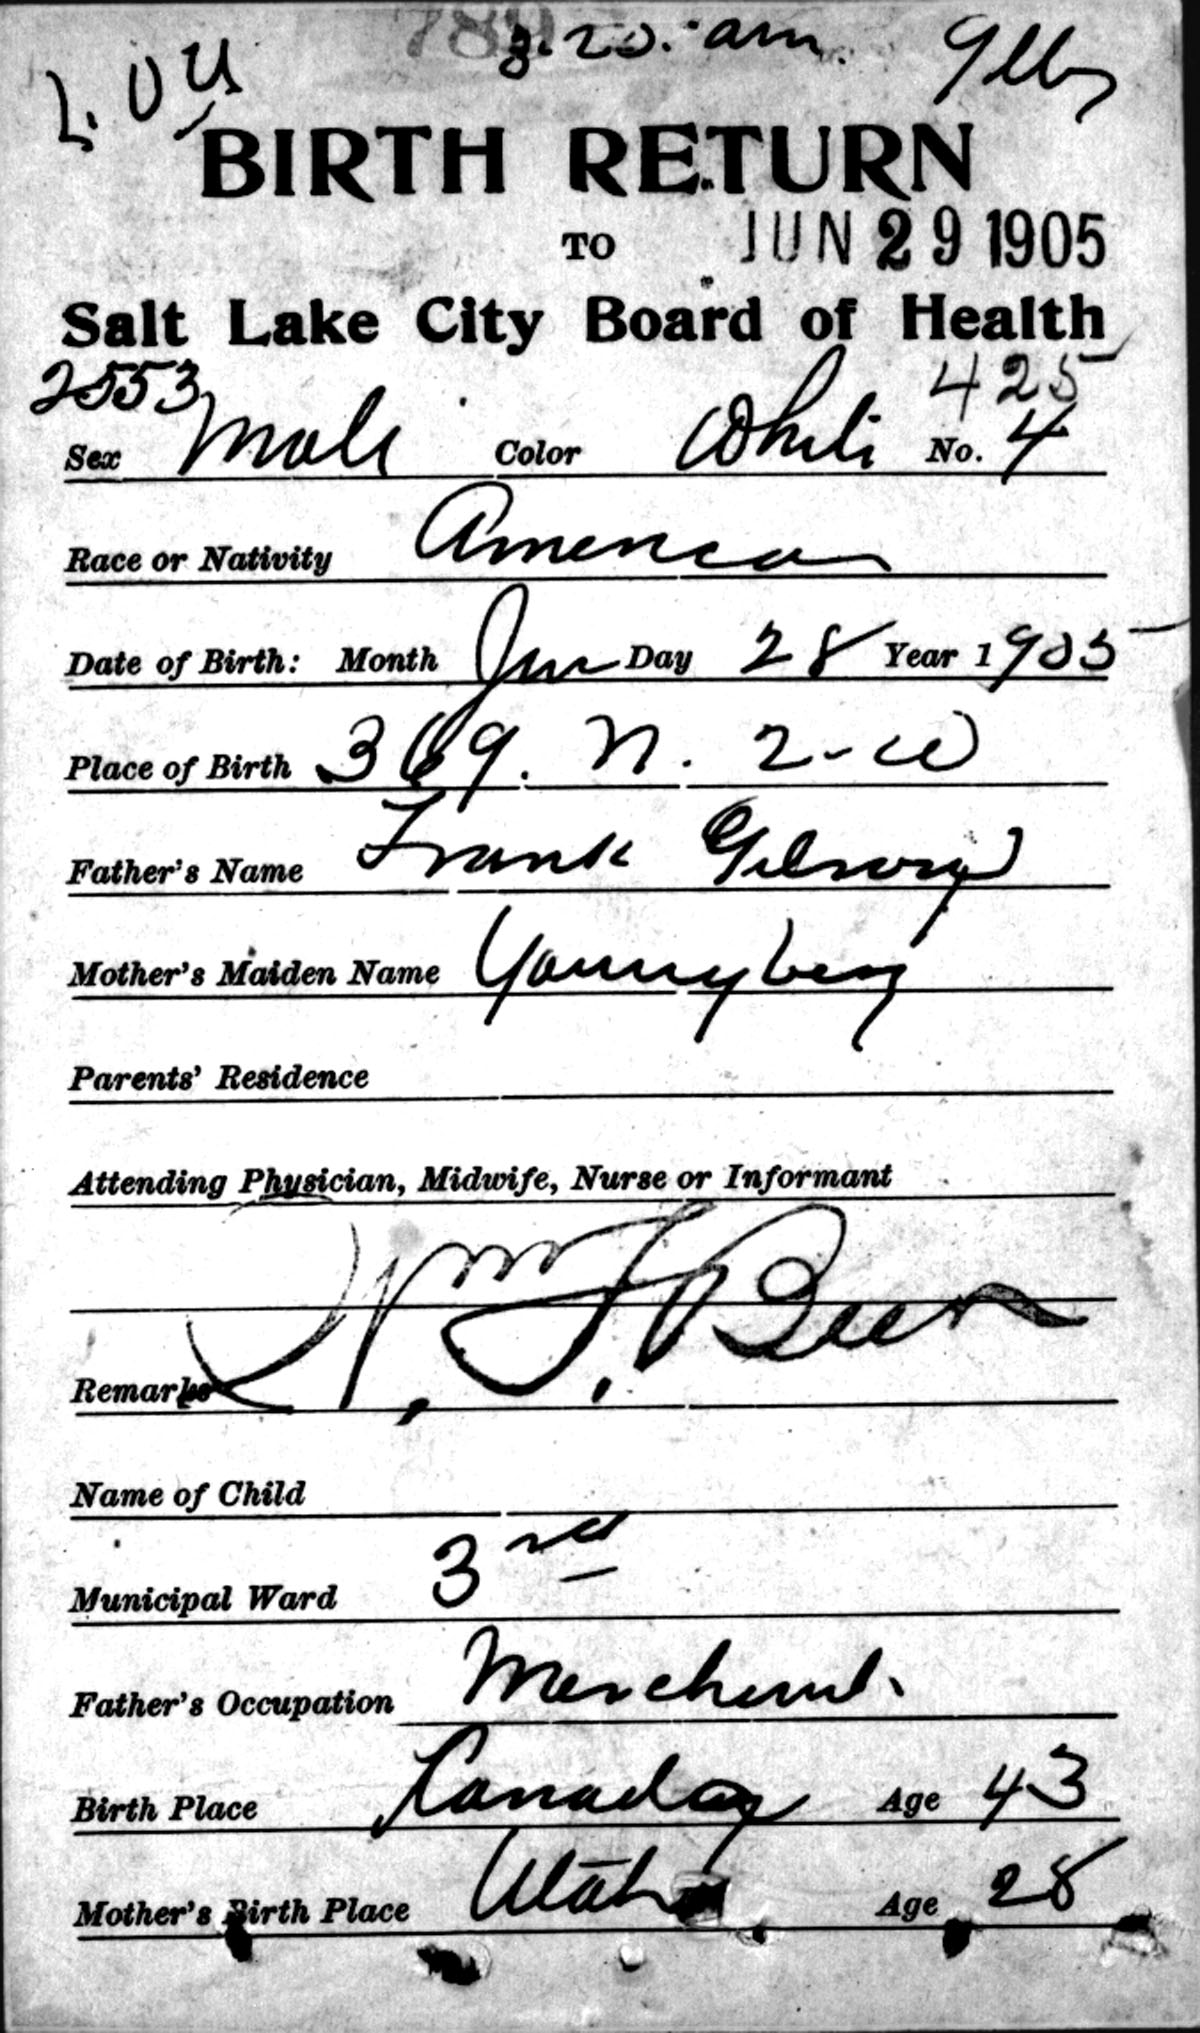 789
3.20. am.
BIRTH RETURN
TO JUN 29 1905
Salt Lake City Board of Health
2553 425
Sex Male Color White No. 4
Race or Nativity American
Date of Birth: Month Jun Day 28 Year 1905
Place of Birth 369. N. 2-W
Father's Name Frank Gilroy
Mother's Maiden Name Youngberg
Parents' Residence
Attending Physician, Midwife, Nurse or Informant
Wm. F. Beer
Remarks
Name of Child
Municipal Ward 3rd
Father's Occupation Merchant.
Birth Place Canada Age 43
Mother's Birth Place Utah Age 28